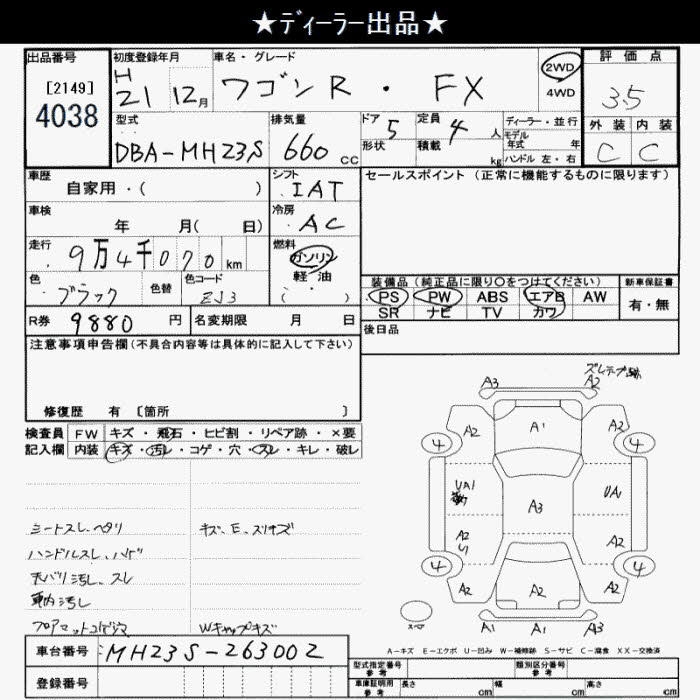 ★ディーラー出品★
出品番号
[2149]
4038
初度登録年月
H
21 12月
車名・グレード
ワゴンR・FX
2WD
4WD
評価点
3.5
外装 内装
C C
型式
DBA-MH23S
排気量
660 cc
ドア 5
形状
定員 4 人
積載 kg
ディーラー・並行
モデル
年式 年
ハンドル 左・右
車歴
自家用・( )
シフト
IAT
セールスポイント(正常に機能するものに限ります)
車検
年 月( 日)
冷房
AC
走行
9万4千070 km
燃料
ガソリン
軽・油
( )
色
ブラック
色替
色コード
ZJ3
装備品(純正品に限り○をつけてください)
PS PW ABS エアB AW
SR ナビ TV カワ
新車保証書
有・無
R券 9880 円
名変期限 月 日
後日品
注意事項申告欄(不具合内容等は具体的に記入して下さい)
修復歴 有 [箇所 ]
検査員
記入欄
FW キズ・飛石・ヒビ割・リペア跡・×要
内装 キズ・汚レ・コゲ・穴・スレ・キレ・破レ
シートスレ、ヘタリ
キズ、E、スリキズ
ハンドルスレ、ハゲ
天バリ汚レ、スレ
車内汚レ
フロアマットコゲ穴
Wキャップキズ
A3 A2
A2 A1 A2
4 4
UA1 A3 UA1
A2 A2
U1
4 4
A2 A2 A2
A1 A1 A3
スペア
A-キズ E-エクボ U-凹み W-補修跡 S-サビ C-腐食 XX-交換済
車台番号 MH23S-263002
登録番号
型式指定番号
参考
類別区分番号
参考
車庫証明用
参考
長さ cm 幅 cm 高さ cm